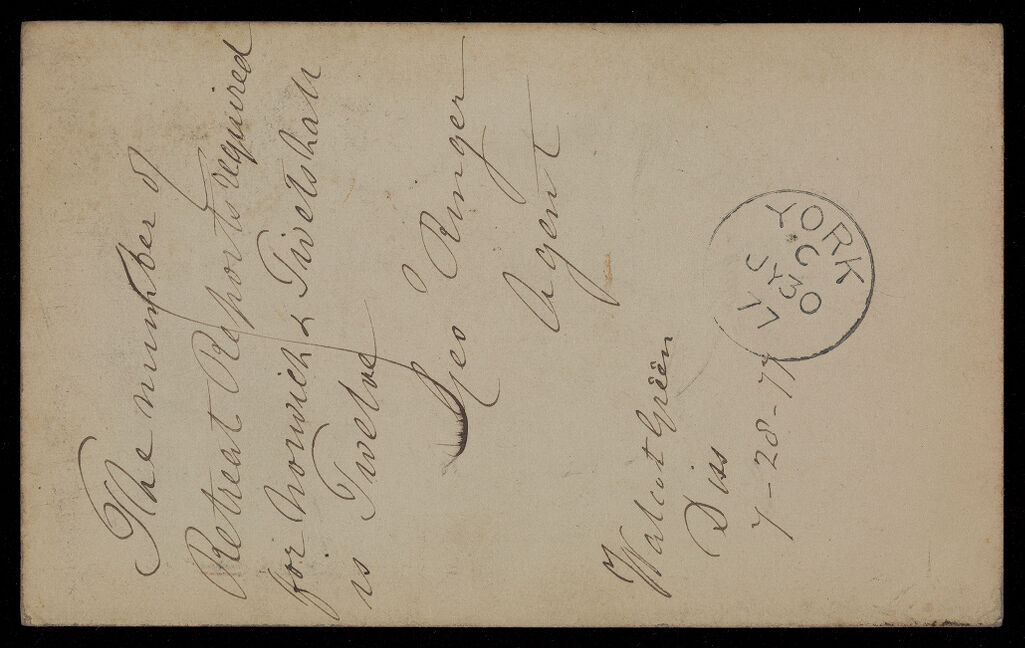 The number of
Retreat Reports required
for Norwich & Tivetshall
is Twelve
Geo Ringer
Agent
Walcot Green
Diss
7-28-77
YORK
C
JY 30
77